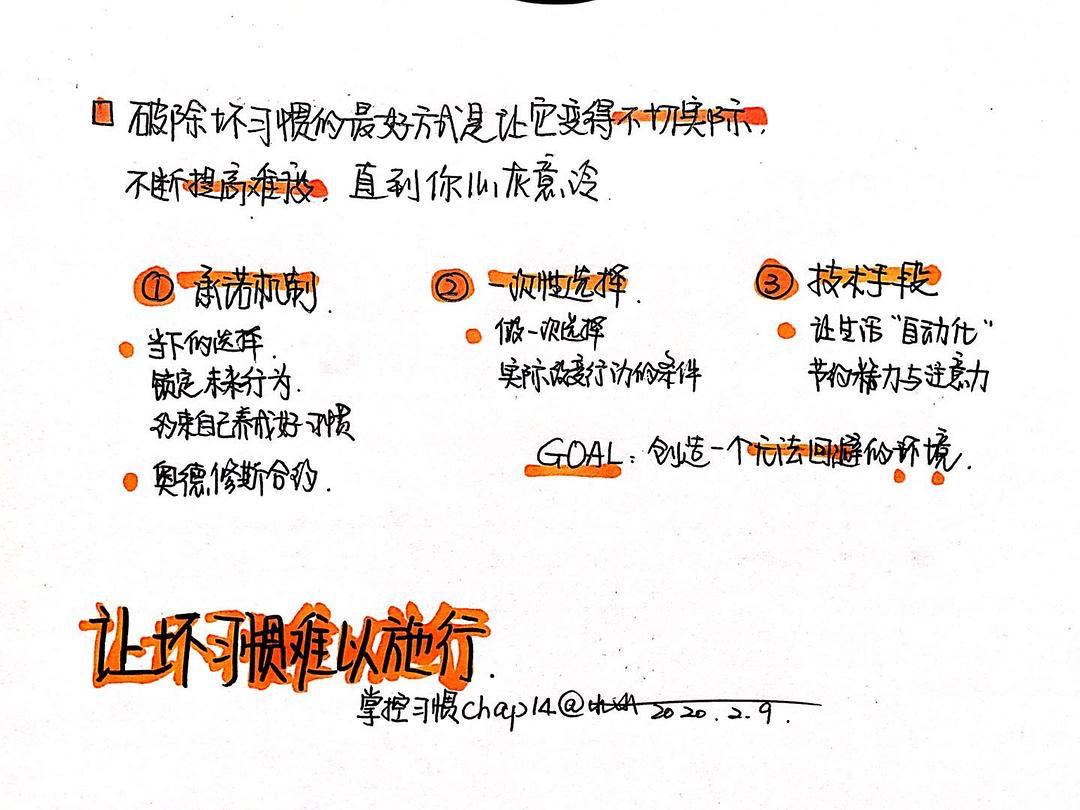 破除坏习惯的最好方式是让它变得不切实际,
不断提高难度,直到你心灰意冷.
① 承诺机制.
当下的选择.
锁定未来行为.
约束自己养成好习惯
奥德修斯合约.
② 一次性选择.
做一次选择
实际改变行动的条件
③ 技术手段
让生活“自动化”
节约精力与注意力
GOAL:创造一个无法回避的环境.
让坏习惯难以施行.
掌控习惯chap14@ 2020.2.9.